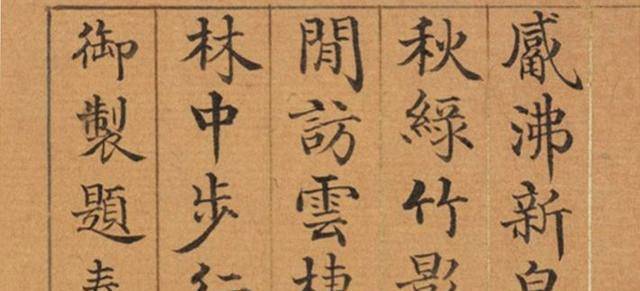 觱沸新
秋綠竹影
閒訪雲棲
林中步行
御製題